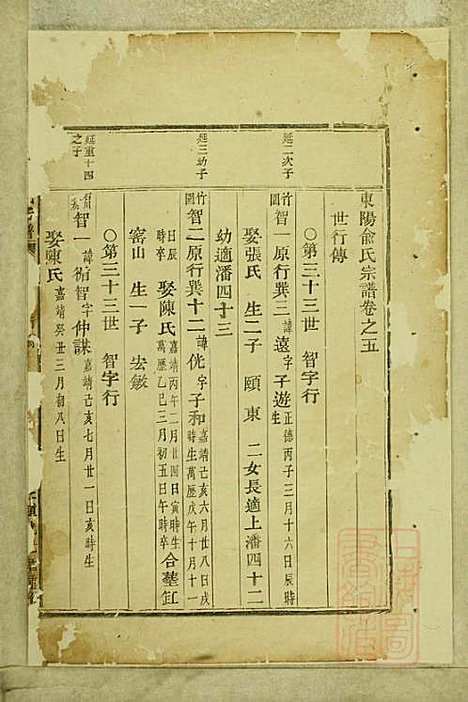 東陽俞氏宗譜卷之五
世行傳
〇第三十三世 智字行
延二次子
竹園 智一 原行巽三 諱遠 字子遊 正德丙子三月十六日辰時生
娶張氏 生二子 頤 東 二女長適上潘四十二
幼適潘四十三
延三幼子
竹園 智二 原行巽十二 諱侊 字子和 嘉靖己亥六月廿八日戌時生萬歷庚午十月十一日辰時卒 娶陳氏 嘉靖丙午二月廿四日寅時生萬歷乙巳三月初五日午時卒 合塟缸
窰山 生一子 宏鏾
〇第三十三世 智字行
延重十四之子
智一 諱 智 字仲謀 嘉靖己亥七月廿一日亥時生
娶陳氏 嘉靖癸丑三月初八日生